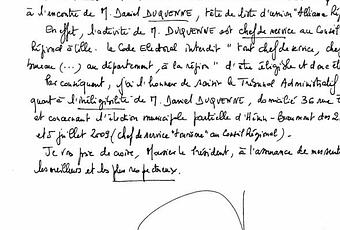 à l'encontre de M. Daniel DUQUENNE, tête de liste d'union "Alliance Ré
En effet, l'activité de M. DUQUENNE est chef de service au Conseil
Régional à Lille. Le Code Electoral interdit "tout chef de service, chef
bureau (...) au département, à la région" d'être éligible et donc él
Par conséquent, j'ai l'honneur de saisir le Tribunal Administratif
quant à l'inéligibilité de M. Daniel DUQUENNE, domicilié 36 rue
et concernant l'élection municipale partielle d'Hénin-Beaumont des 2
et 5 juillet 2009 (chef de service "tourisme" au Conseil Régional).
Je vous prie de croire, Monsieur le Président, à l'assurance de mes sent
les meilleurs et les plus respectueux.